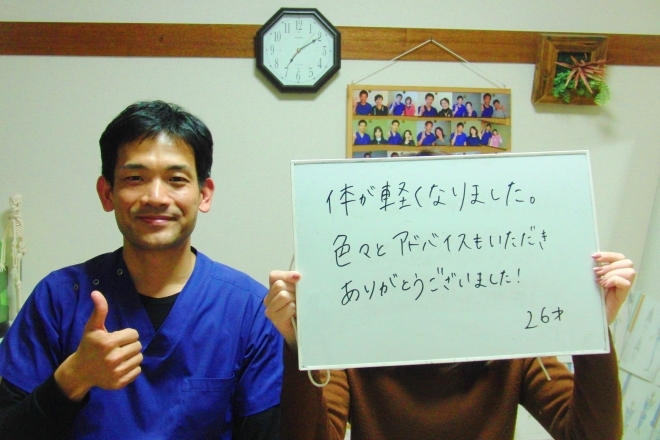 体が軽くなりました。
色々とアドバイスもいただき
ありがとうございました!
26才